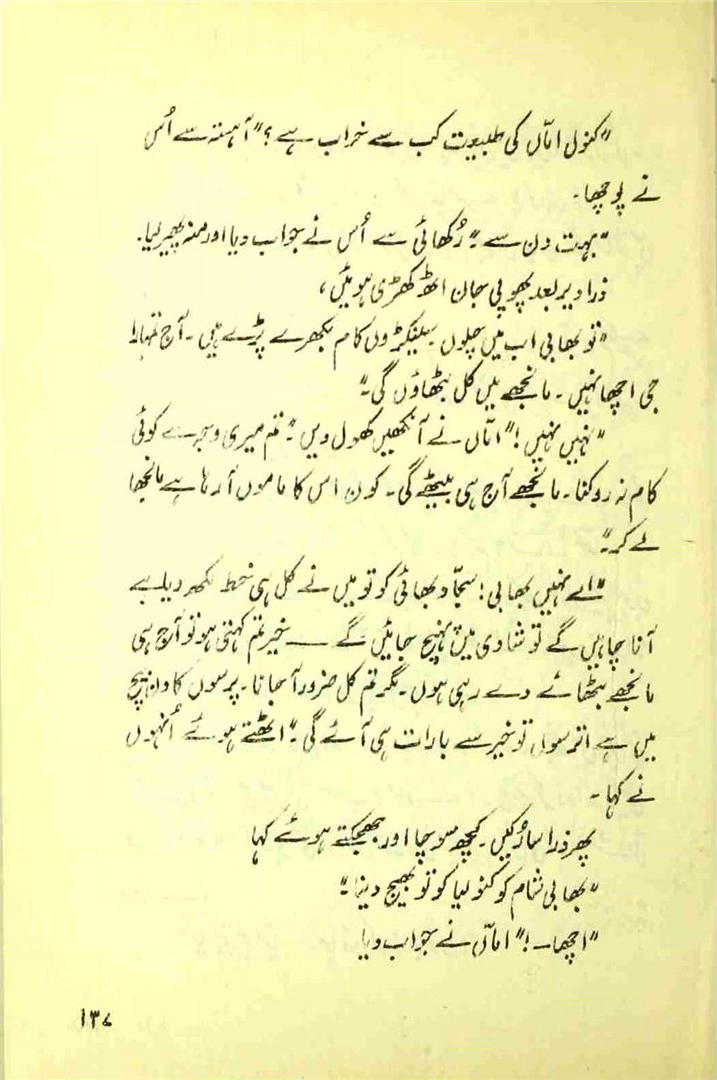 "کنول اماّں کی طبیعت کب سے خراب ہے؟" آہستہ سے اُس
نے پوچھا۔
"بہت دن سے۔" رُکھائی سے اُس نے جواب دیا اور منہ پھیر لیا۔
ذرا دیر بعد پھوپی جان اٹھ کھڑی ہوئیں،
"تو بھابی اب میں چلوں سینکڑوں کام بکھرے پڑے ہیں۔ آج تمہارا
جی اچھا نہیں۔ مانجھے میں کل بٹھاؤں گی۔"
"نہیں نہیں!" اماّں نے آنکھیں کھول دیں۔ "تم میری وجہ سے کوئی
کام نہ روکنا۔ مانجھے آج ہی بیٹھے گی۔ کون اس کا ماموں آ رہا ہے مانجھا
لے کر۔"
"اے نہیں بھابی! سجاّد بھائی کو تو میں نے کل ہی خط لکھ دیا ہے
آنا چاہیں گے تو شادی میں پہنچ جائیں گے — خیر تم کہتی ہو تو آج ہی
مانجھے بٹھائے دے رہی ہوں۔ مگر تم کل ضرور آ جانا۔ پرسوں کا دن بیچ
میں ہے اترسوں تو خیر سے بارات ہی آئے گی۔" اٹھتے ہوئے اُنہوں
نے کہا۔
پھر ذرا سا رُکیں۔ کچھ سوچا اور جھجکتے ہوئے کہا
"بھابی شام کو کنولیا کو تو بھیج دینا۔"
"اچھا۔!" اماّں نے جواب دیا
۱۳۷